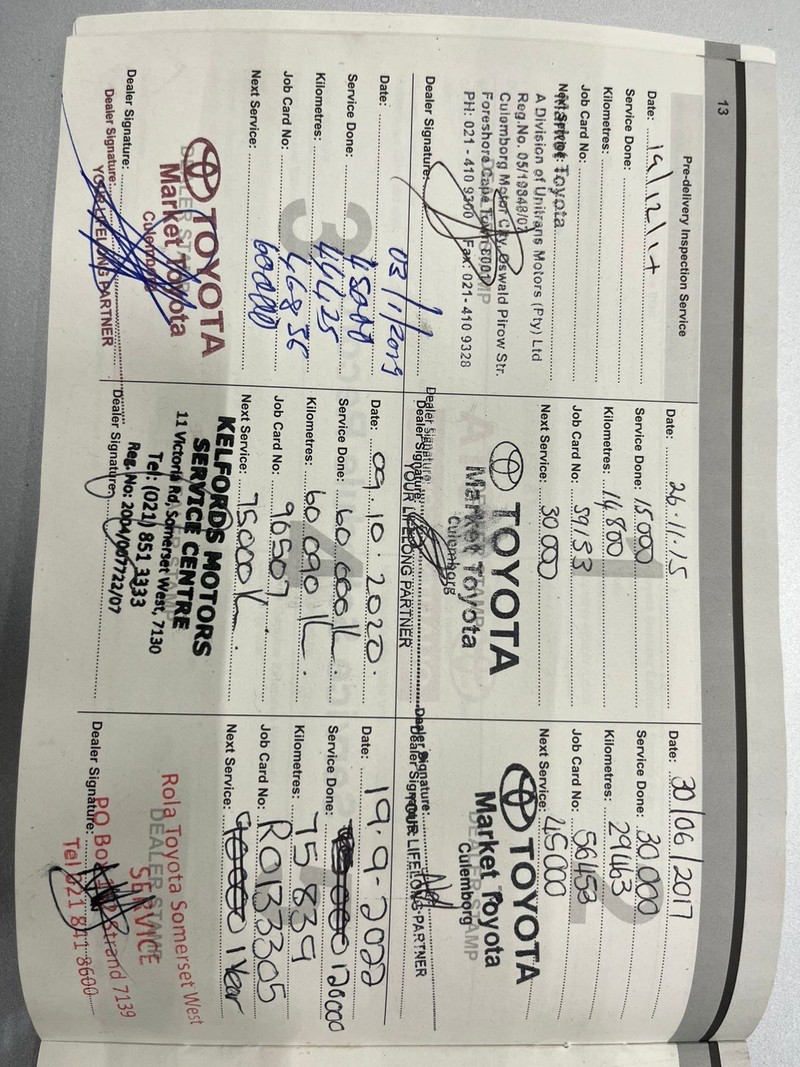 13
Pre-delivery Inspection Service
Date: 19/12/14
Service Done:
Kilometres:
Job Card No:
Next Service:
Market Toyota
A Division of Unitrans Motors (Pty) Ltd
Reg.No. 05/19848/07
Culemborg Motor City, Oswald Pirow Str.
Foreshore Cape Town 8001
PH: 021 - 410 9300 Fax: 021 - 410 9328
Dealer Signature:
Date: 26.11.15
Service Done: 15000
Kilometres: 14 800
Job Card No: 59133
Next Service: 30 000
TOYOTA
Market Toyota
Culemborg
Dealer Signature:
Dealer Signature:
YOUR LIFELONG PARTNER
Date: 30/06/2017
Service Done: 30,000
Kilometres: 29463
Job Card No: 56453
Next Service: 45000
TOYOTA
Market Toyota
Culemborg
DEALER STAMP
Dealer Signature:
Dealer Signature:
YOUR LIFELONG PARTNER
3
Date: 03/1/2019
Service Done: 45000
Kilometres: 44425
Job Card No: 46836
Next Service: 60000
TOYOTA
Market Toyota
Culemborg
DEALER STAMP
Dealer Signature:
Dealer Signature:
YOUR LIFELONG PARTNER
Date: 09.10.2020.
Service Done: 60.000 K.
Kilometres: 60.090 K.
Job Card No: 96507.
Next Service: 75000 K.
KELFORDS MOTORS
SERVICE CENTRE
11 Victoria Rd, Somerset West, 7130
Tel: (021) 851 3333
Reg. No: 2004/007722/07
Dealer Signature:
Date: 19.9-2022
Service Done: 120000
Kilometres: 75839
Job Card No: R0133305
Next Service: 90000 1 Year
Rola Toyota Somerset West
DEALER STAMP
SERVICE
PO Box Strand 7139
Tel 021 841 8600
Dealer Signature: